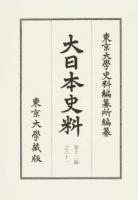 東京大學史料編纂所編纂
大日本史料
第十二編
之六十一
東京大學藏版